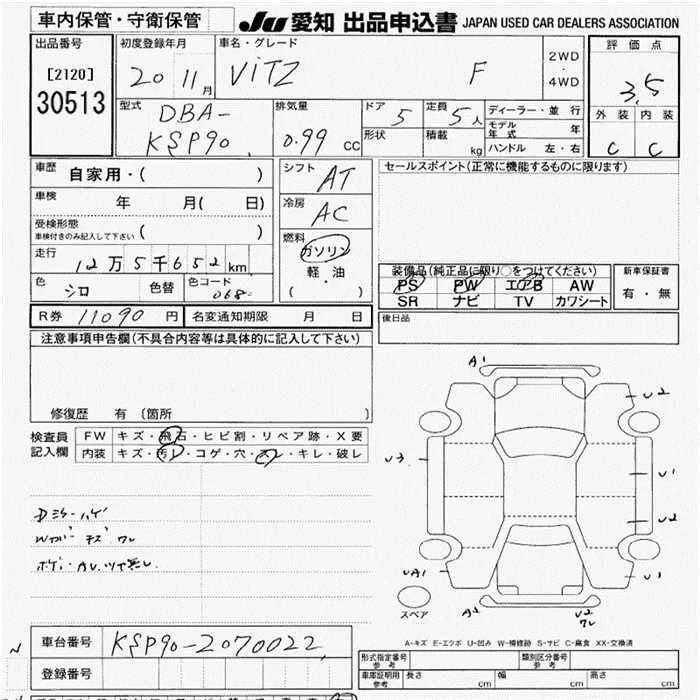 車内保管・守衛保管
JU 愛知 出品申込書 JAPAN USED CAR DEALERS ASSOCIATION
出品番号
[2120]
30513
初度登録年月
20 11月
車名・グレード
VITZ F
2WD
・
4WD
評価点
3.5
外装 内装
C C
型式
DBA-
KSP90
排気量
0.99 cc
ドア 5
定員 5人
形状
積載 kg
ディーラー・並行
モデル年式 年
ハンドル 左・右
車歴 自家用・( )
車検 年 月( 日)
受検形態
車検付きのみ記入して下さい ( )
走行
12万5千652km
色 シロ 色替 色コード 068
シフト AT
冷房 AC
燃料
ガソリン
軽・油
( )
セールスポイント(正常に機能するものに限ります)
装備品(純正品に限り○をつけてください)
PS PW エアB AW
SR ナビ TV カワシート
新車保証書
有・無
R券 11090円 名変通知期限 月 日
後日品
注意事項申告欄(不具合内容等は具体的に記入して下さい)
修復歴 有 〔箇所 〕
検査員
記入欄
FW キズ・飛石・ヒビ割・リペア跡・X要
内装 キズ・汚レ・コゲ・穴・スレ・キレ・破レ
A1
U2
U3
U1
U2
UA1
U1
A2
U2
スペア
A-キズ E-エクボ U-凹み W-補修跡 S-サビ C-腐食 XX-交換済
車台番号 KSP90-2070022
登録番号
形式指定番号
参考
類別区分番号
参考
車庫証明用
参考
長さ cm 幅 cm 高さ cm